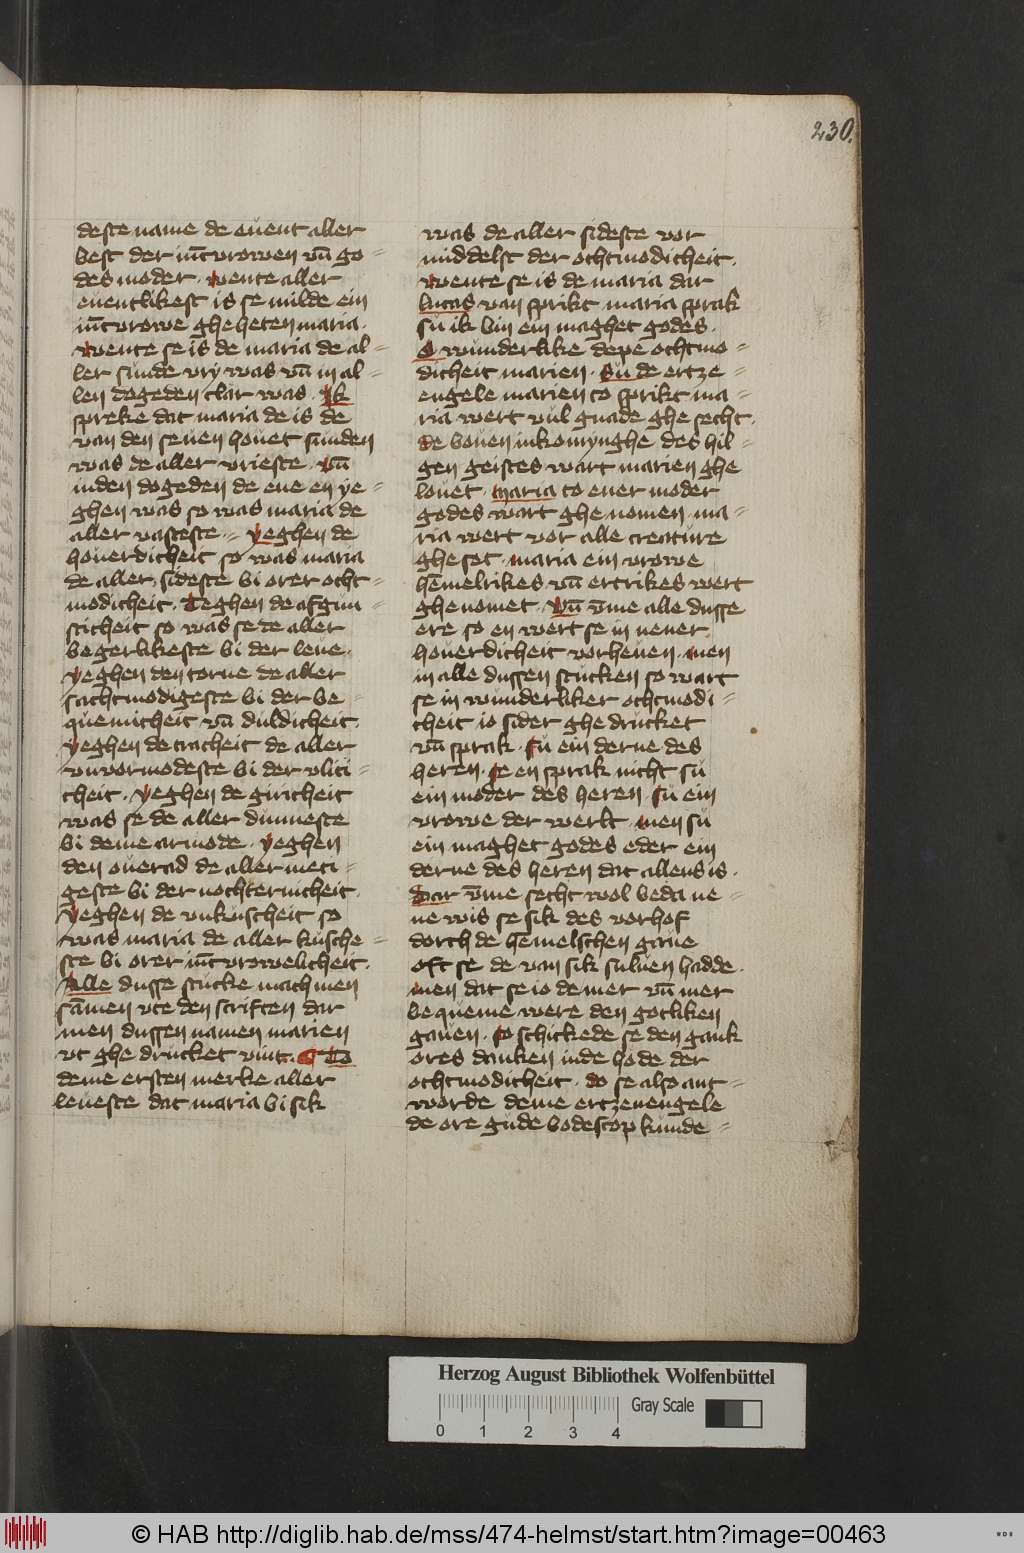 230.
deste name de euent aller
best der iūcvrowen vn̄ go=
des moder · wente aller
euentlikest is se milde ein
iūcvrowe ghe heten maria ·
wente se is de maria de al=
ler sunde vry was vn̄ in al=
len dogeden clar was · Ik
spreke dat maria de is de
van den seuen houet sunden
was de aller vrieste · vn̄
in den dogeden de ene en ye=
ghen was so was maria de
aller vasteste = yeghen de
houerdicheit so was maria
de aller sideste bi orer ocht=
modicheit · Teghen de afgun=
sticheit so was se de aller
begerlikeste bi der leue ·
yeghen den torne de aller
sachtmodigeste bi der be=
quemicheit vn̄ duldicheit ·
yeghen de tracheit de aller
vnvormodeste bi der vliti=
cheit · yeghen de giricheit
was se de aller dunneste
bi deme armode · yeghen
den ouerad de aller meti=
geste bi der nochternicheit ·
yeghen de vnkuscheit so
was maria de aller kusche=
ste bi orer iūcvrowelicheit ·
Alle dusse stucke mach men
sāmen vte den scriften dar
men dussen namen marien
vt ghe drucket vint · To
deme ersten merke aller
leueste dat maria bi sik
was de aller sideste vor
middelst der ochtmodicheit ·
wente se is de maria dar
lucas van sprikt maria sprak
su ik bin ein maghet godes ·
O wunderlike depe ochtmo=
dicheit marien · Su de ertze=
engele marien to sprikt ma=
ria wert vul gnade ghe secht ·
de bouen inkomynghe des hil=
gen geistes wart marien ghe
louet · maria to ener moder
godes wart ghe nomen · ma=
ria wert vor alle creature
ghe sot · maria ein vrowe
hēmelrikes vn̄ ertrikes wert
ghenomet · Vn̄ v̄me alle dusse
ere so en wert se in nener
houerdicheit vorheuen · men
in alle dussen stucken so wart
se in wunderliker ochtmodi=
cheit io sider ghe drucket
vn̄ sprak · su ein derne des
heren · se en sprak nicht su
ein moder des heren · su ein
vrowe der werlt · men su
ein maghet godes eder ein
derne des heren dat allens is ·
Dar v̄me secht wol beda ne=
ne wis se sik des vorhof
dorch de hēmelschen gaue
oft se de van sik suluen hadde ·
men dat se io de mer vn̄ mer
bequeme were den gotliken
gauen · so schickede se den gank
ores danken in de hode der
ochtmodicheit · do se also ant=
worde deme ertzenengele
de ore gude bodescop kunde=
Herzog August Bibliothek Wolfenbüttel
Gray Scale
0 1 2 3 4
© HAB http://diglib.hab.de/mss/474-helmst/start.htm?image=00463